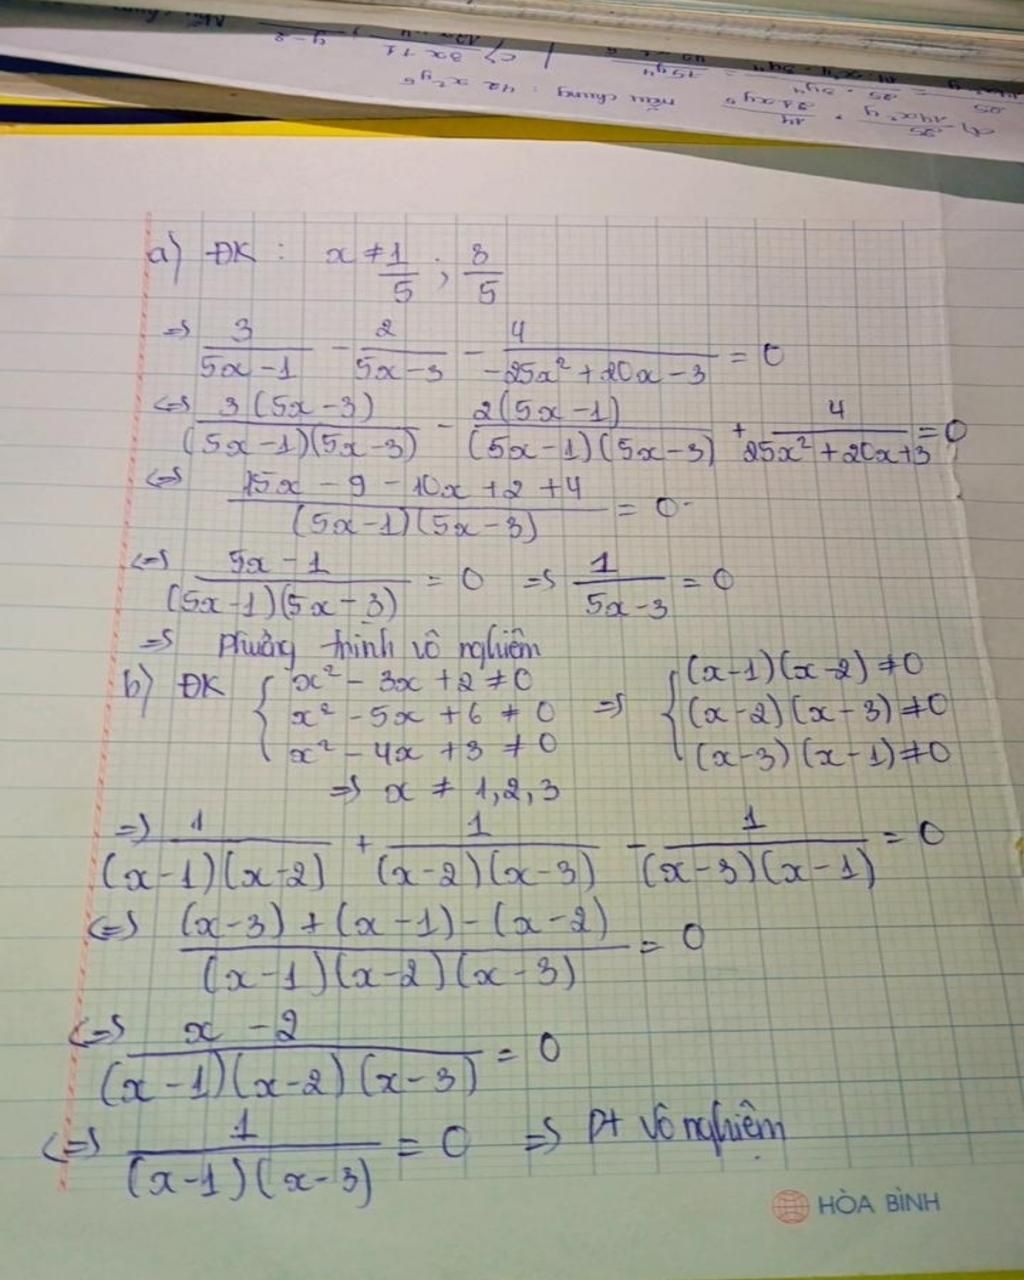 c) 3x+11 y-2
d) 25/14x²y , 14/21xy⁵ mẫu chung : 42x²y⁵
a) ĐK : x ≠ 1/5 ; 3/5
=> 3/(5x-1) - 2/(5x-3) - 4/(-25x²+20x-3) = 0
<=> 3(5x-3)/((5x-1)(5x-3)) - 2(5x-1)/((5x-1)(5x-3)) + 4/(25x²+20x+3) = 0
<=> (15x-9-10x+2+4)/((5x-1)(5x-3)) = 0
<=> (5x-1)/((5x-1)(5x-3)) = 0 => 1/(5x-3) = 0
=> Phương trình vô nghiệm
b) ĐK { x² - 3x + 2 ≠ 0 => { (x-1)(x-2) ≠ 0
x² - 5x + 6 ≠ 0 (x-2)(x-3) ≠ 0
x² - 4x + 3 ≠ 0 (x-3)(x-1) ≠ 0
=> x ≠ 1,2,3
=> 1/((x-1)(x-2)) + 1/((x-2)(x-3)) - 1/((x-3)(x-1)) = 0
<=> ((x-3)+(x-1)-(x-2))/((x-1)(x-2)(x-3)) = 0
<=> (x-2)/((x-1)(x-2)(x-3)) = 0
<=> 1/((x-1)(x-3)) = 0 => Pt vô nghiệm
HÒA BÌNH